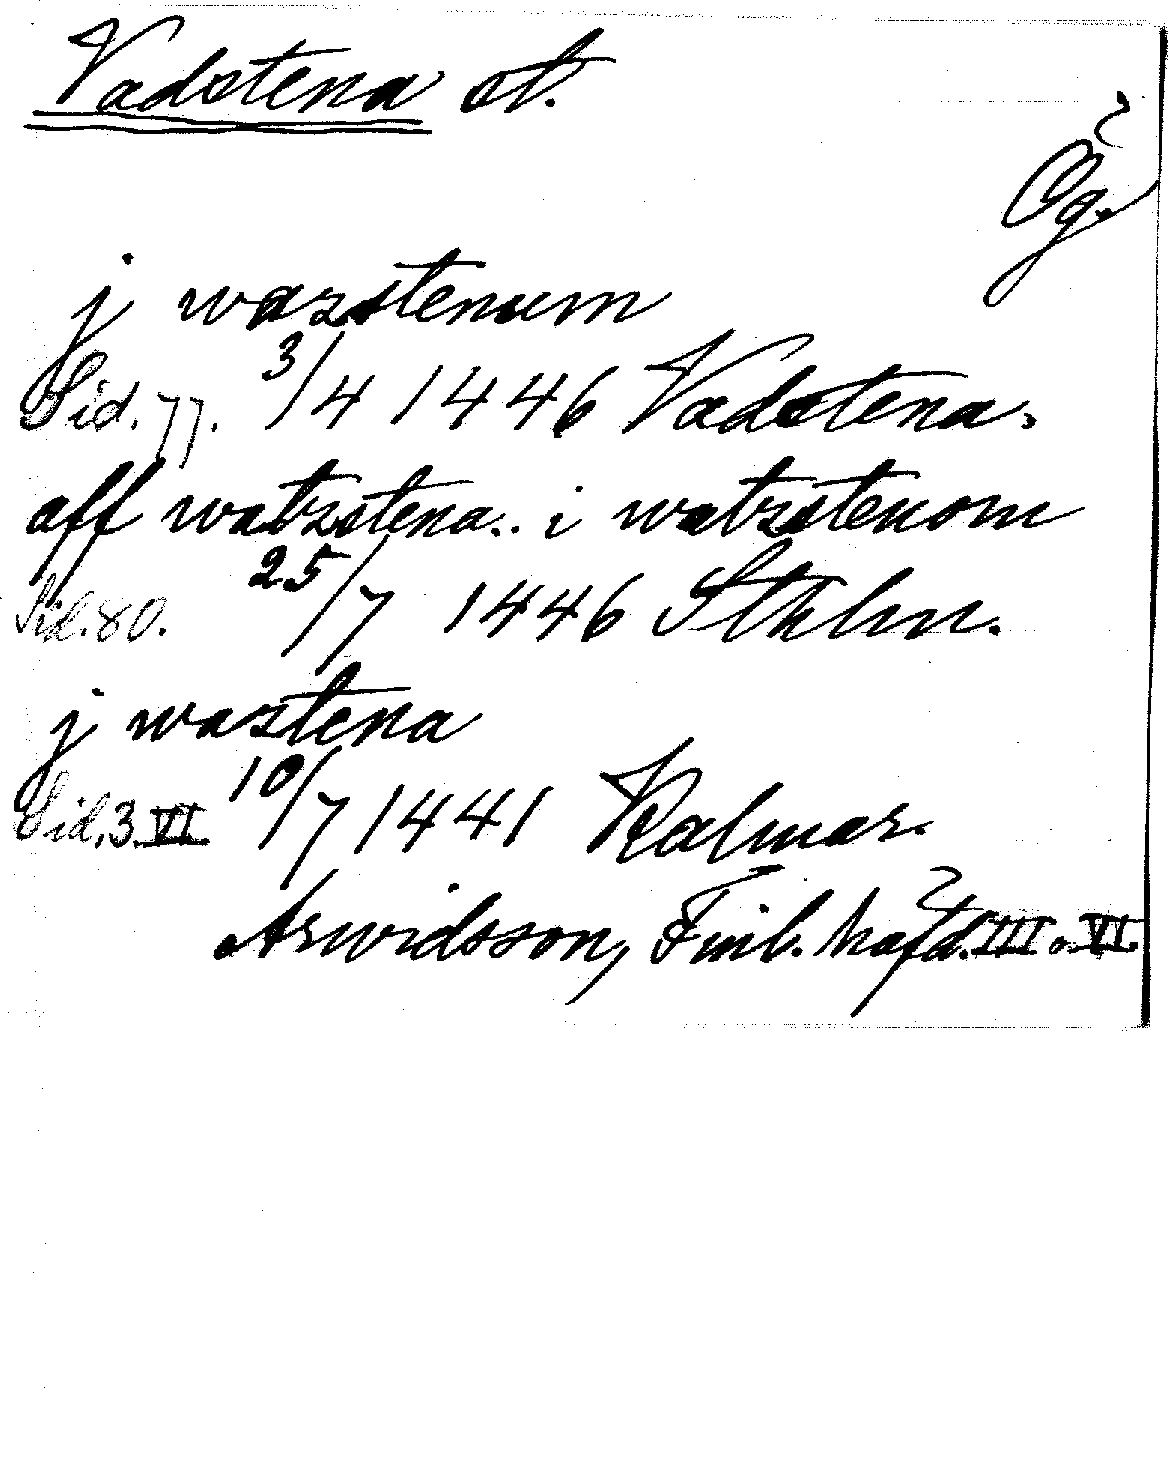 Vadstena st.
Ög.
j wazstenum
Sid. 77. 3/4 1446 Vadstena.
aff watzstena.. i watzstenom
Sid. 80. 25/7 1446 Sthlm.
j wastena
Sid. 3 VI 10/7 1441 Kalmar.
Arwidsson, Finl. häfd. III o. VI.